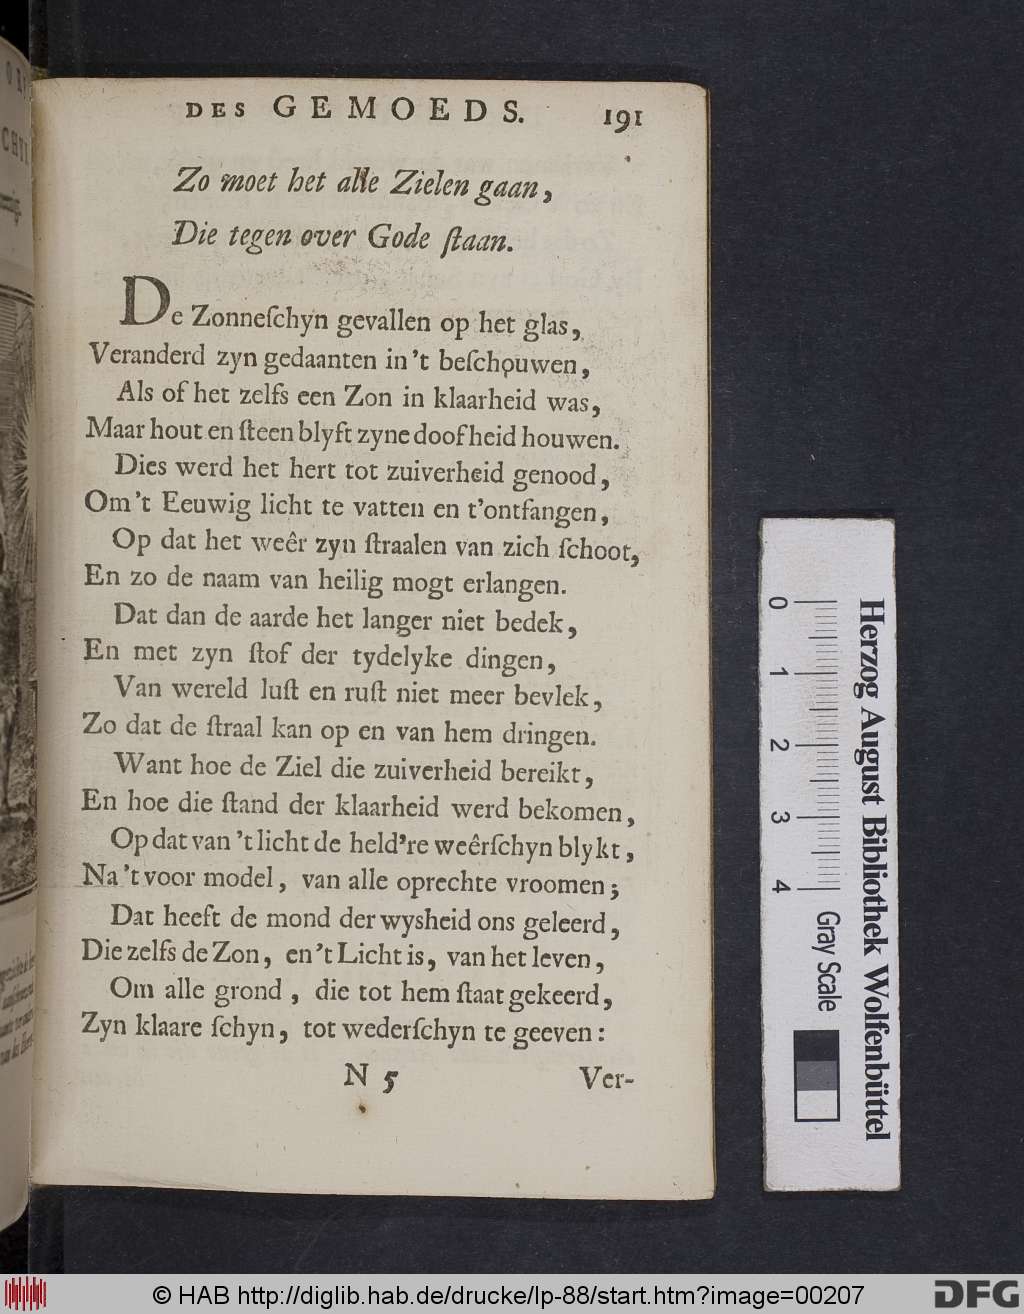 DES GEMOEDS. 191
Zo moet het alle Zielen gaan,
Die tegen over Gode ſtaan.
De Zonneſchyn gevallen op het glas,
Veranderd zyn gedaanten in't beſchouwen,
Als of het zelfs een Zon in klaarheid was,
Maar hout en ſteen blyft zyne doof heid houwen.
Dies werd het hert tot zuiverheid genood,
Om't Eeuwig licht te vatten en t'ontfangen,
Op dat het weêr zyn ſtraalen van zich ſchoot,
En zo de naam van heilig mogt erlangen.
Dat dan de aarde het langer niet bedek,
En met zyn ſtof der tydelyke dingen,
Van wereld luſt en ruſt niet meer bevlek,
Zo dat de ſtraal kan op en van hem dringen.
Want hoe de Ziel die zuiverheid bereikt,
En hoe die ſtand der klaarheid werd bekomen,
Op dat van 't licht de held're weêrſchyn blykt,
Na 't voor model, van alle oprechte vroomen;
Dat heeft de mond der wysheid ons geleerd,
Die zelfs de Zon, en 't Licht is, van het leven,
Om alle grond, die tot hem ſtaat gekeerd,
Zyn klaare ſchyn, tot wederſchyn te geeven:
N 5 Ver-
0 1 2 3 4
Gray Scale
Herzog August Bibliothek Wolfenbüttel
© HAB http://diglib.hab.de/drucke/lp-88/start.htm?image=00207
DFG